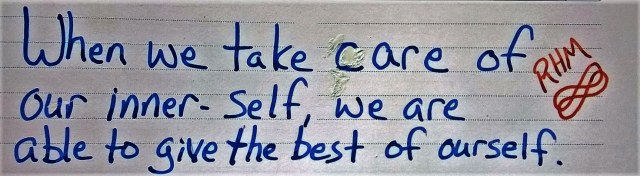 When we take care of
RHM
our inner-self, we are
able to give the best of ourself.